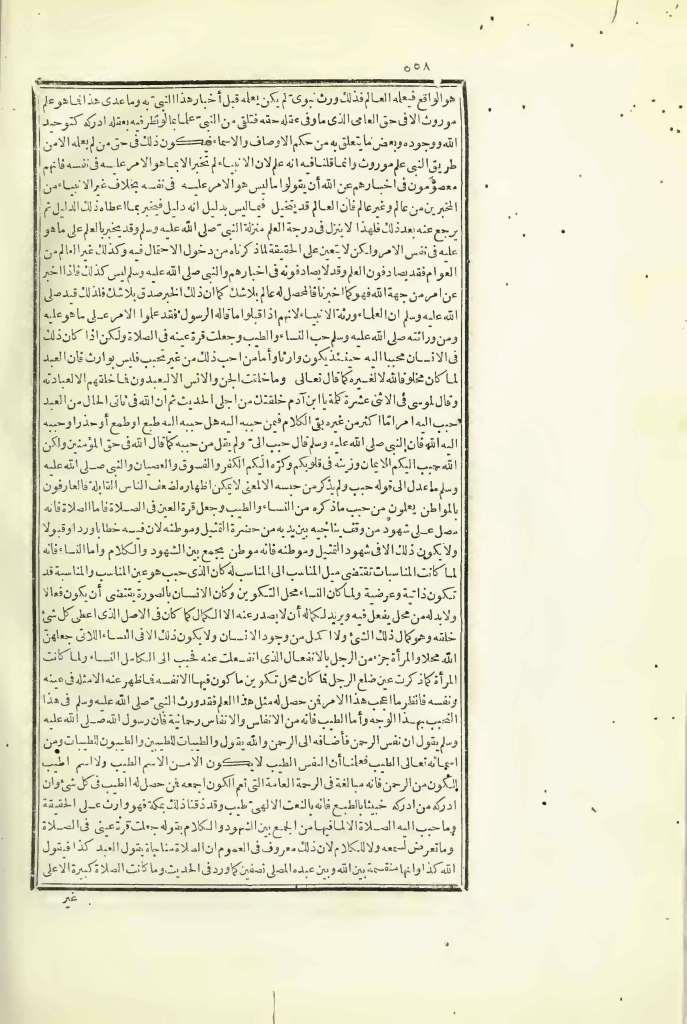 ٥٥٨
هو الواقع فيعلمه العالم فذلك ورث نبوى لم يكن يعلمه قبل أخبار هذا النبى به وما عدى هذا فما هو علم
موروث الا فى حق العامى الذى ما وفى عقله حقه فتلقى من النبى علما بما لو نظر فيه بعقله ادركه كتوحيد
الله ووجوده وبعض ما يتعلق به من حكم الاوصاف والاسماء فيكون ذلك فى حق من لم يعلمه الا من
طريق النبى علم موروث وانما قلنا فيه انه علم لان الانبياء لم تخبر الا بما هو الامر عليه فى نفسه فانهم
معصومون فى اخبارهم عن الله أن يقولوا ما ليس هو الامر عليه فى نفسه بخلاف غير الانبياء من
المخبرين من عالم وغير عالم فان العالم قد يتخيل فيما ليس بدليل انه دليل فيخبر بما اعطاه ذلك الدليل ثم
يرجع عنه بعد ذلك فلهذا لا ينزل فى درجة العلم منزلة النبى صلى الله عليه وسلم وقد يخبر بالعلم على ما هو
عليه فى نفس الامر ولكن لا يتعين على الحقيقة لما ذكرناه من دخول الاحتمال فيه وكذلك غير العالم من
العوام فقد يصادفون العلم وقد لا يصادفونه فى اخبارهم والنبى صلى الله عليه وسلم ليس كذلك فاذا اخبر
عن امر من جهة الله فهو كما اخبر فالمحصل له عالم بلا شك كما ان ذلك الخبر صدق بلا شك فلذلك قيد صلى
الله عليه وسلم ان العلماء ورثة الانبياء لانهم اذا قبلوا ما قاله الرسول فقد علموا الامر على ما هو عليه
ومن وراثته صلى الله عليه وسلم حب النساء والطيب وجعلت قرة عينه فى الصلاة ولكن اذا كان ذلك
فى الانسان محببا اليه حينئذ يكون وارثا وأما من احب ذلك من غير تحبب فليس بوارث فان العبد
لما كان مخلوقا لله لا لغيره كما قال تعالى وما خلقت الجن والانس الا ليعبدون فما خلقهم الا لعبادته
وقال لموسى فى الاثنى عشرة كلمة يا ابن آدم خلقتك من اجلى الحديث ثم ان الله فى ثانى الحال من العبد
حبب اليه امرا ما اكثر من غيره بقى الكلام فيمن حببه اليه هل حببه اليه طبع او طمع أو حذر او حببه
اليه الله فان النبى صلى الله عليه وسلم قال حبب الى ولم يقل من حببه كما قال الله فى حق المؤمنين ولكن
الله حبب اليكم الايمان وزينه فى قلوبكم وكره اليكم الكفر والفسوق والعصيان والنبى صلى الله عليه
وسلم ما عدل الى قوله حبب ولم يذكر من حببه الا لمعنى لا يمكن اظهاره لضعف النفاس القابلة فالعارفون
بالمواطن يعلمون من حبب ما ذكره من النساء والطيب وجعل قرة العين فى الصلاة فاما الصلاة فانه
مصل على شهود من وقف يناجيه بين يديه من حضرة التمثيل وموطنه لان فيه خطابا وردا وقبولا
ولا يكون ذلك الا فى شهود التمثيل وموطنه فانه موطن يجمع بين الشهود والكلام وأما النساء فانه
لما كانت المناسبات تقتضى ميل المناسب الى المناسب له كان الذى حبب هو عين المناسب والمناسبة قد
تكون ذاتية وعرضية ولما كان النساء محل التكوين وكان الانسان بالصورة يقتضى أن يكون فعالا
ولا بد له من محل يفعل فيه ويريد لكماله أن لا يصدر عنه الا الكمال كما كان فى الاصل الذى اعطى كل شئ
خلقه وهو كمال ذلك الشئ ولا اكمل من وجود الانسان ولا يكون ذلك الا فى النساء اللاتى جعلهن
الله محلا والمرأة جزء من الرجل بالانفعال الذى انفعلت عنه فحبب الى الكامل النساء ولما كانت
المرأة كما ذكرت عين ضلع الرجل فما كان محل تكوين ما كون فيها الا نفسه فما ظهر عنه الا مثله فى عينه
ونفسه فانظر ما اعجب هذا الامر فمن حصل له مثل هذا العلم فقد ورث النبى صلى الله عليه وسلم فى هذا
التحبب بهذا الوجه وأما الطيب فانه من الانفاس والانفاس رحمانية فان رسول الله صلى الله عليه
وسلم يقول ان نفس الرحمن فأضافه الى الرحمن والله يقول والطيبات للطيبين والطيبون للطيبات ومن
اسمائه تعالى الطيب فعلمنا أن النفس الطيب لا يكون الا من الاسم الطيب ولا اسم اطيب
للكون من الرحمن فانه مبالغة فى الرحمة العامة التى تعم الكون اجمعه فمن حصل له الطيب فى كل شئ وان
ادركه من ادركه خبيثا بالطبع فانه بالنعت الالهى طيب وقد ذقنا ذلك بمكة فهو وارث على الحقيقة
وما حبب اليه الصلاة الا لما فيها من الجمع بين الشهود والكلام بقوله جعلت قرة عينى فى الصلاة
وما تعرض لسمعه ولا للكلام لان ذلك معروف فى العموم ان الصلاة مناجاة يقول العبد كذا فيقول
الله كذا وانها منقسمة بين الله وبين عبده المصلى نصفين كما ورد فى الحديث وما كانت الصلاة كبيرة الا على
غير